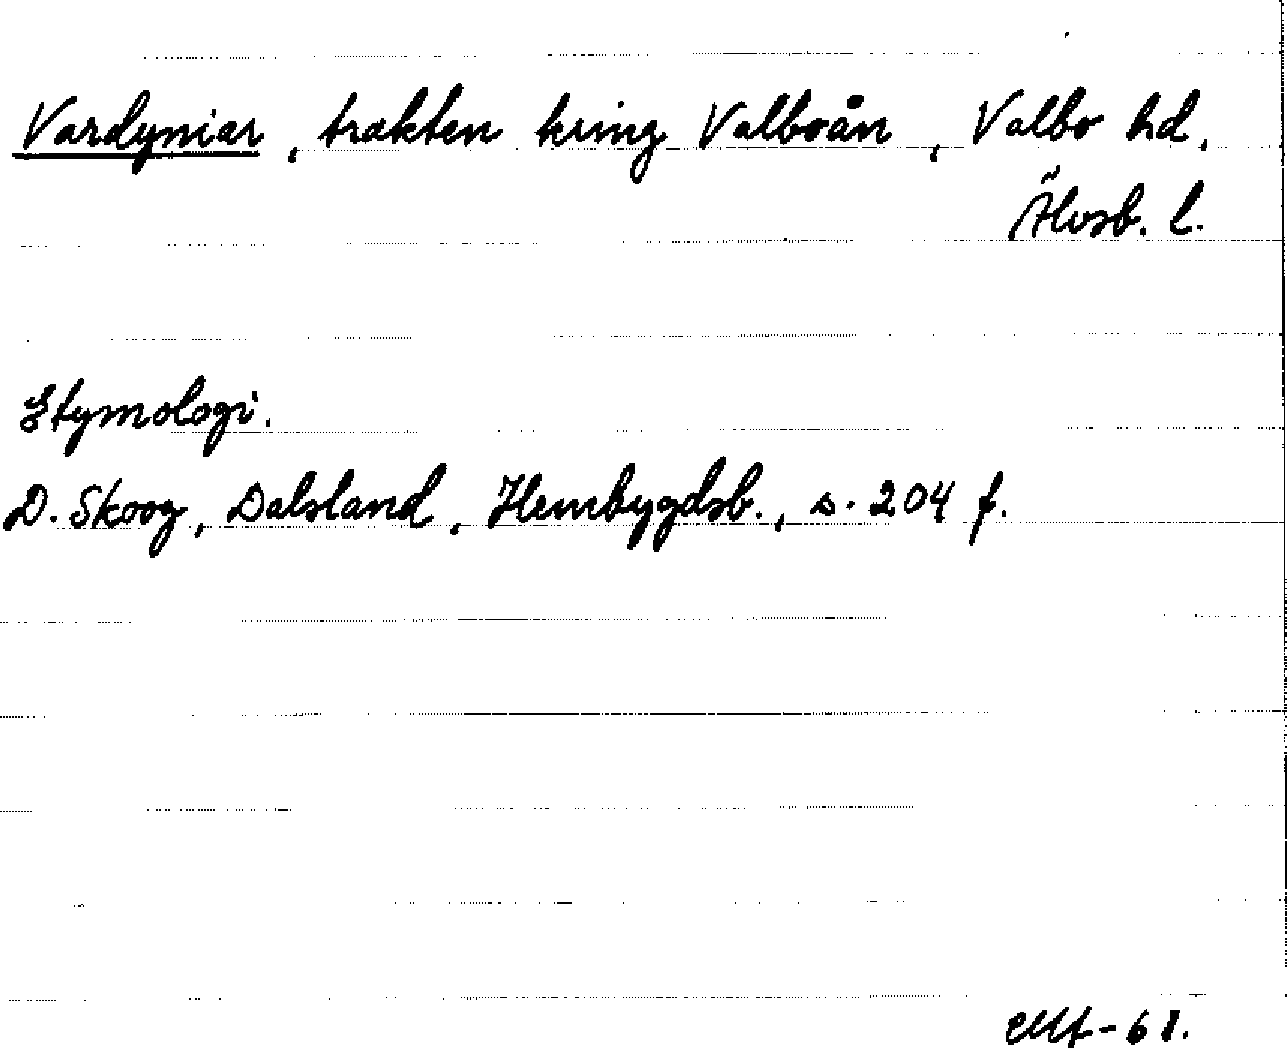 Vardyniar, trakten kring Valboån, Valbo hd,
Älvsb. l.
Etymologi.
D. Skoog, Dalsland, Hembygdsb., s. 204 f.
-61.